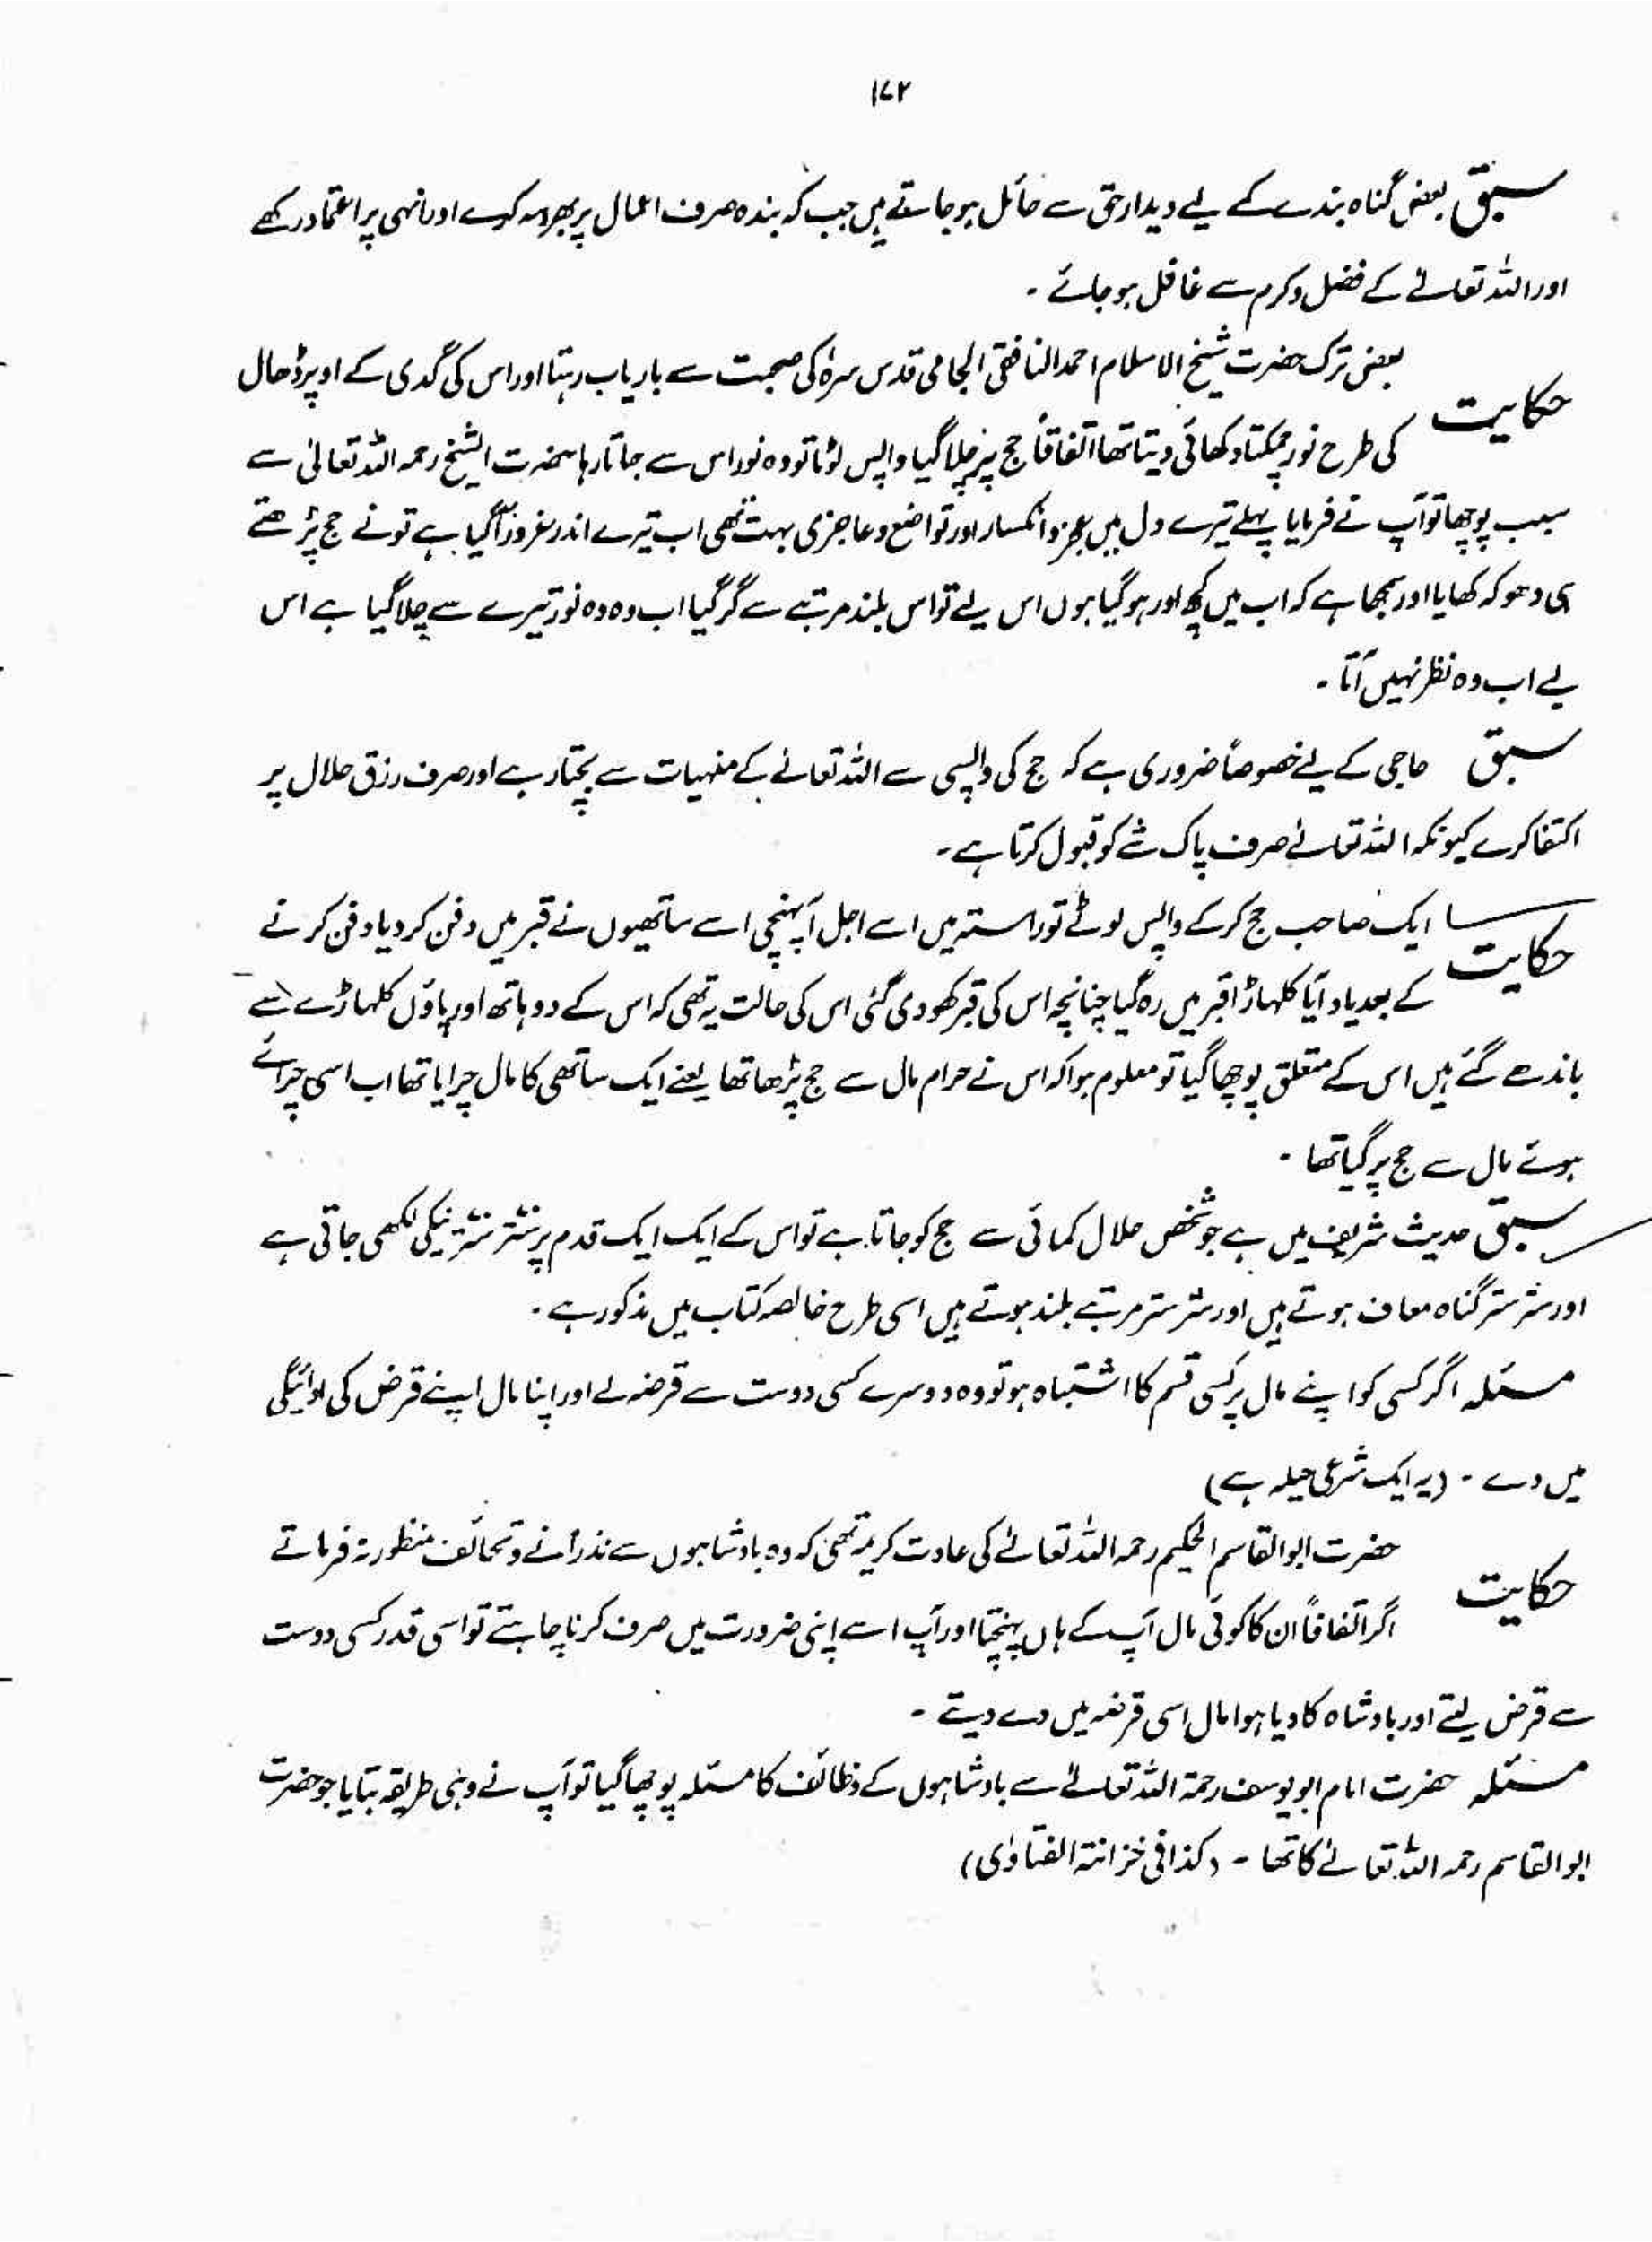 ۱۷۲
سبق بعض گناہ بندے کے لیے دیدار حق سے حائل ہو جاتے ہیں جب کہ بندہ صرف اعمال پر بھروسہ کرے اور انہی پر اعتماد رکھے
اور اللہ تعالےٰ کے فضل و کرم سے غافل ہو جائے ۔
حکایت بعض ترک حضرت شیخ الاسلام احمد النافقی الجامی قدس سرہٗ کی صحبت سے باریاب رہتا اور اس کی گدی کے اوپر ڈھال
کی طرح نور چمکتا دکھائی دیتا تھا اتفاقاً حج پر چلا گیا واپس لوٹا تو وہ نور اس سے جاتا رہا حضرت الشیخ رحمہ اللہ تعالیٰ سے
سبب پوچھا تو آپ نے فرمایا پہلے تیرے دل میں عجز و انکسار اور تواضع و عاجزی بہت تھی اب تیرے اندر غرور آگیا ہے تونے حج پڑھتے
ہی دھوکہ کھایا اور سمجھا ہے کہ اب میں کچھ اور ہو گیا ہوں اس لیے تو اس بلند مرتبے سے گر گیا اب وہ وہ نور تیرے سے چلا گیا ہے اس
لیے اب وہ نظر نہیں آتا ۔
سبق حاجی کے لیے خصوصاً ضروری ہے کہ حج کی واپسی سے اللہ تعالےٰ کے منہیات سے بچتا رہے اور صرف رزق حلال پر
اکتفا کرے کیونکہ اللہ تعالےٰ صرف پاک شے کو قبول کرتا ہے ۔
حکایت ایک صاحب حج کرکے واپس لوٹے تو راستہ میں اسے اجل آپہنچی اسے ساتھیوں نے قبر میں دفن کر دیا دفن کرنے
کے بعد یاد آیا کلہاڑا قبر میں رہ گیا چنانچہ اس کی قبر کھودی گئی اس کی حالت یہ تھی کہ اس کے دو ہاتھ اور پاؤں کلہاڑے سے
باندھے گئے ہیں اس کے متعلق پوچھا گیا تو معلوم ہوا کہ اس نے حرام مال سے حج پڑھا تھا یعنے ایک ساتھی کا مال چرایا تھا اب اسی چرائے
ہوئے مال سے حج پر گیا تھا ۔
سبق حدیث شریف میں ہے جو شخص حلال کمائی سے حج کو جاتا ہے تو اس کے ایک ایک قدم پر ستر ستر نیکی لکھی جاتی ہے
اور ستر ستر گناہ معاف ہوتے ہیں اور ستر ستر مرتبے بلند ہوتے ہیں اسی طرح خالصہ کتاب میں مذکور ہے ۔
مسئلہ اگر کسی کو اپنے مال پر کسی قسم کا اشتباہ ہو تو وہ دوسرے کسی دوست سے قرضہ لے اور اپنا مال اپنے قرض کی ادائیگی
میں دے ۔ (یہ ایک شرعی حیلہ ہے)
حکایت حضرت ابوالقاسم الحکیم رحمہ اللہ تعالےٰ کی عادت کریمہ تھی کہ وہ بادشاہوں سے نذرانے و تحائف منظور نہ فرماتے
اگر اتفاقاً ان کا کوئی مال آپ کے ہاں پہنچتا اور آپ اسے اپنی ضرورت میں صرف کرنا چاہتے تو اسی قدر کسی دوست
سے قرض لیتے اور بادشاہ کا دیا ہوا مال اسی قرضہ میں دے دیتے ۔
مسئلہ حضرت امام ابویوسف رحمۃ اللہ تعالےٰ سے بادشاہوں کے وظائف کا مسئلہ پوچھا گیا تو آپ نے وہی طریقہ بتایا جو حضرت
ابوالقاسم رحمہ اللہ تعالےٰ کا تھا ۔ (کذا فی خزانۃ الفتاوٰی)